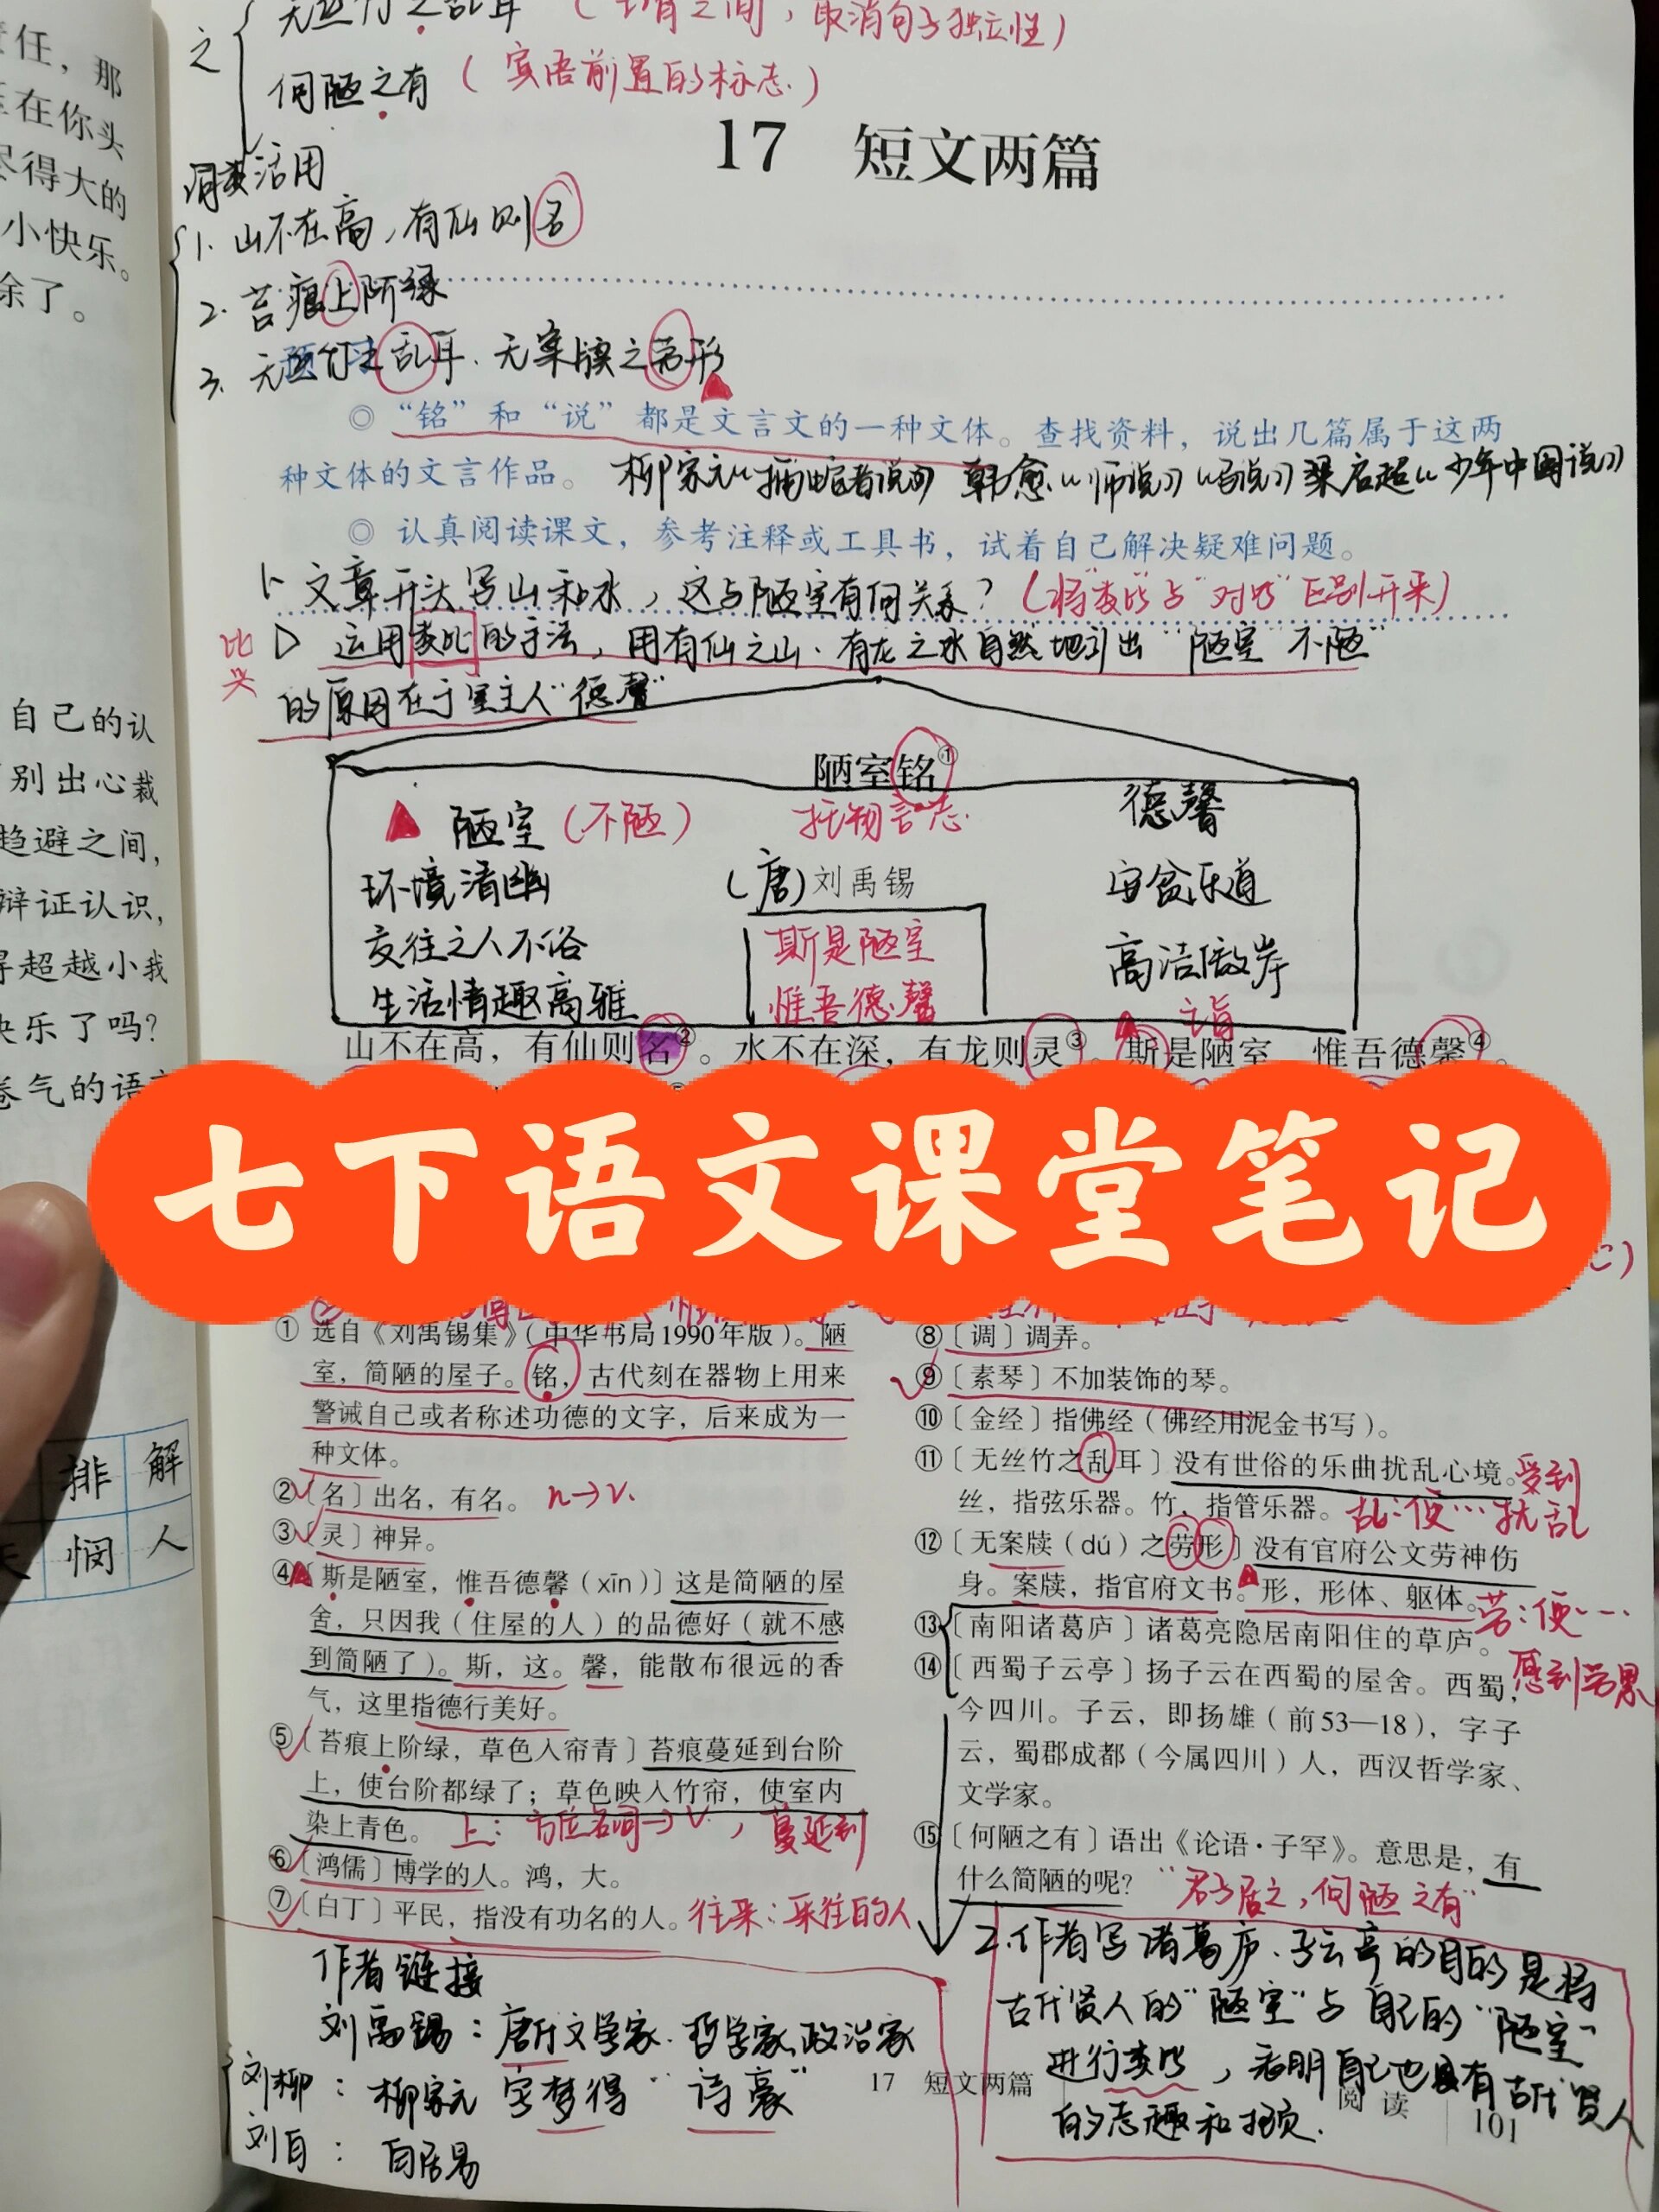 无丝竹之乱耳（主谓之间，取消句子独立性）
之
何陋之有（宾语前置的标志）
17 短文两篇
词类活用
1. 山不在高，有仙则名
2. 苔痕上阶绿
3. 无丝竹之乱耳、无案牍之劳形
◎ “铭”和“说”都是文言文的一种文体。查找资料，说出几篇属于这两
种文体的文言作品。 柳宗元《捕蛇者说》 韩愈《师说》《马说》梁启超《少年中国说》
◎ 认真阅读课文，参考注释或工具书，试着自己解决疑难问题。
1、文章开头写山和水，这与陋室有何关系？（将“类比”与“对比”区别开来）
比兴
▷ 运用类比的手法，用有仙之山、有龙之水自然地引出“陋室”不陋”
的原因在于室主人“德馨”
陋室铭①
陋室（不陋） 托物言志 德馨
环境清幽 （唐）刘禹锡 安贫乐道
交往之人不俗 斯是陋室 高洁傲岸
生活情趣高雅 惟吾德馨 主旨
山不在高，有仙则名②。水不在深，有龙则灵③。斯是陋室，惟吾德馨④。
七下语文课堂笔记
① 选自《刘禹锡集》（中华书局1990年版）。陋
室，简陋的屋子。铭，古代刻在器物上用来
警诫自己或者称述功德的文字，后来成为一
种文体。
②〔名〕出名，有名。 n→v.
③〔灵〕神异。
④〔斯是陋室，惟吾德馨（xīn）〕这是简陋的屋
舍，只因我（住屋的人）的品德好（就不感
到简陋了）。斯，这。馨，能散布很远的香
气，这里指德行美好。
⑤〔苔痕上阶绿，草色入帘青〕苔痕蔓延到台阶
上，使台阶都绿了；草色映入竹帘，使室内
染上青色。 上：方位名词→v，蔓延到
⑥〔鸿儒〕博学的人。鸿，大。
⑦〔白丁〕平民，指没有功名的人。往来：来往的人
⑧〔调〕调弄。
⑨〔素琴〕不加装饰的琴。
⑩〔金经〕指佛经（佛经用泥金书写）。
⑪〔无丝竹之乱耳〕没有世俗的乐曲扰乱心境。受到
丝，指弦乐器。竹，指管乐器。 乱：使…扰乱
⑫〔无案牍（dú）之劳形〕没有官府公文劳神伤
身。案牍，指官府文书。形，形体、躯体。劳：使…
感到劳累
⑬〔南阳诸葛庐〕诸葛亮隐居南阳住的草庐。
⑭〔西蜀子云亭〕扬子云在西蜀的屋舍。西蜀，
今四川。子云，即扬雄（前53—18），字子
云，蜀郡成都（今属四川）人，西汉哲学家、
文学家。
⑮〔何陋之有〕语出《论语·子罕》。意思是，有
什么简陋的呢？ “君子居之，何陋之有”
作者链接
刘禹锡：唐代文学家、哲学家、政治家
刘柳：柳宗元 字梦得 “诗豪”
刘白：白居易
2. 作者写诸葛庐、子云亭的目的是将
古代贤人的“陋室”与自己的“陋室”
进行类比，表明自己也具有古代贤人
的志趣和抱负.
17 短文两篇
阅读 101
任，那
在你头
尽得大的
小快乐。
余了。
自己的认
别出心裁
趋避之间，
辩证认识，
得超越小我
快乐了吗？
卷气的语
排 解
悯 人